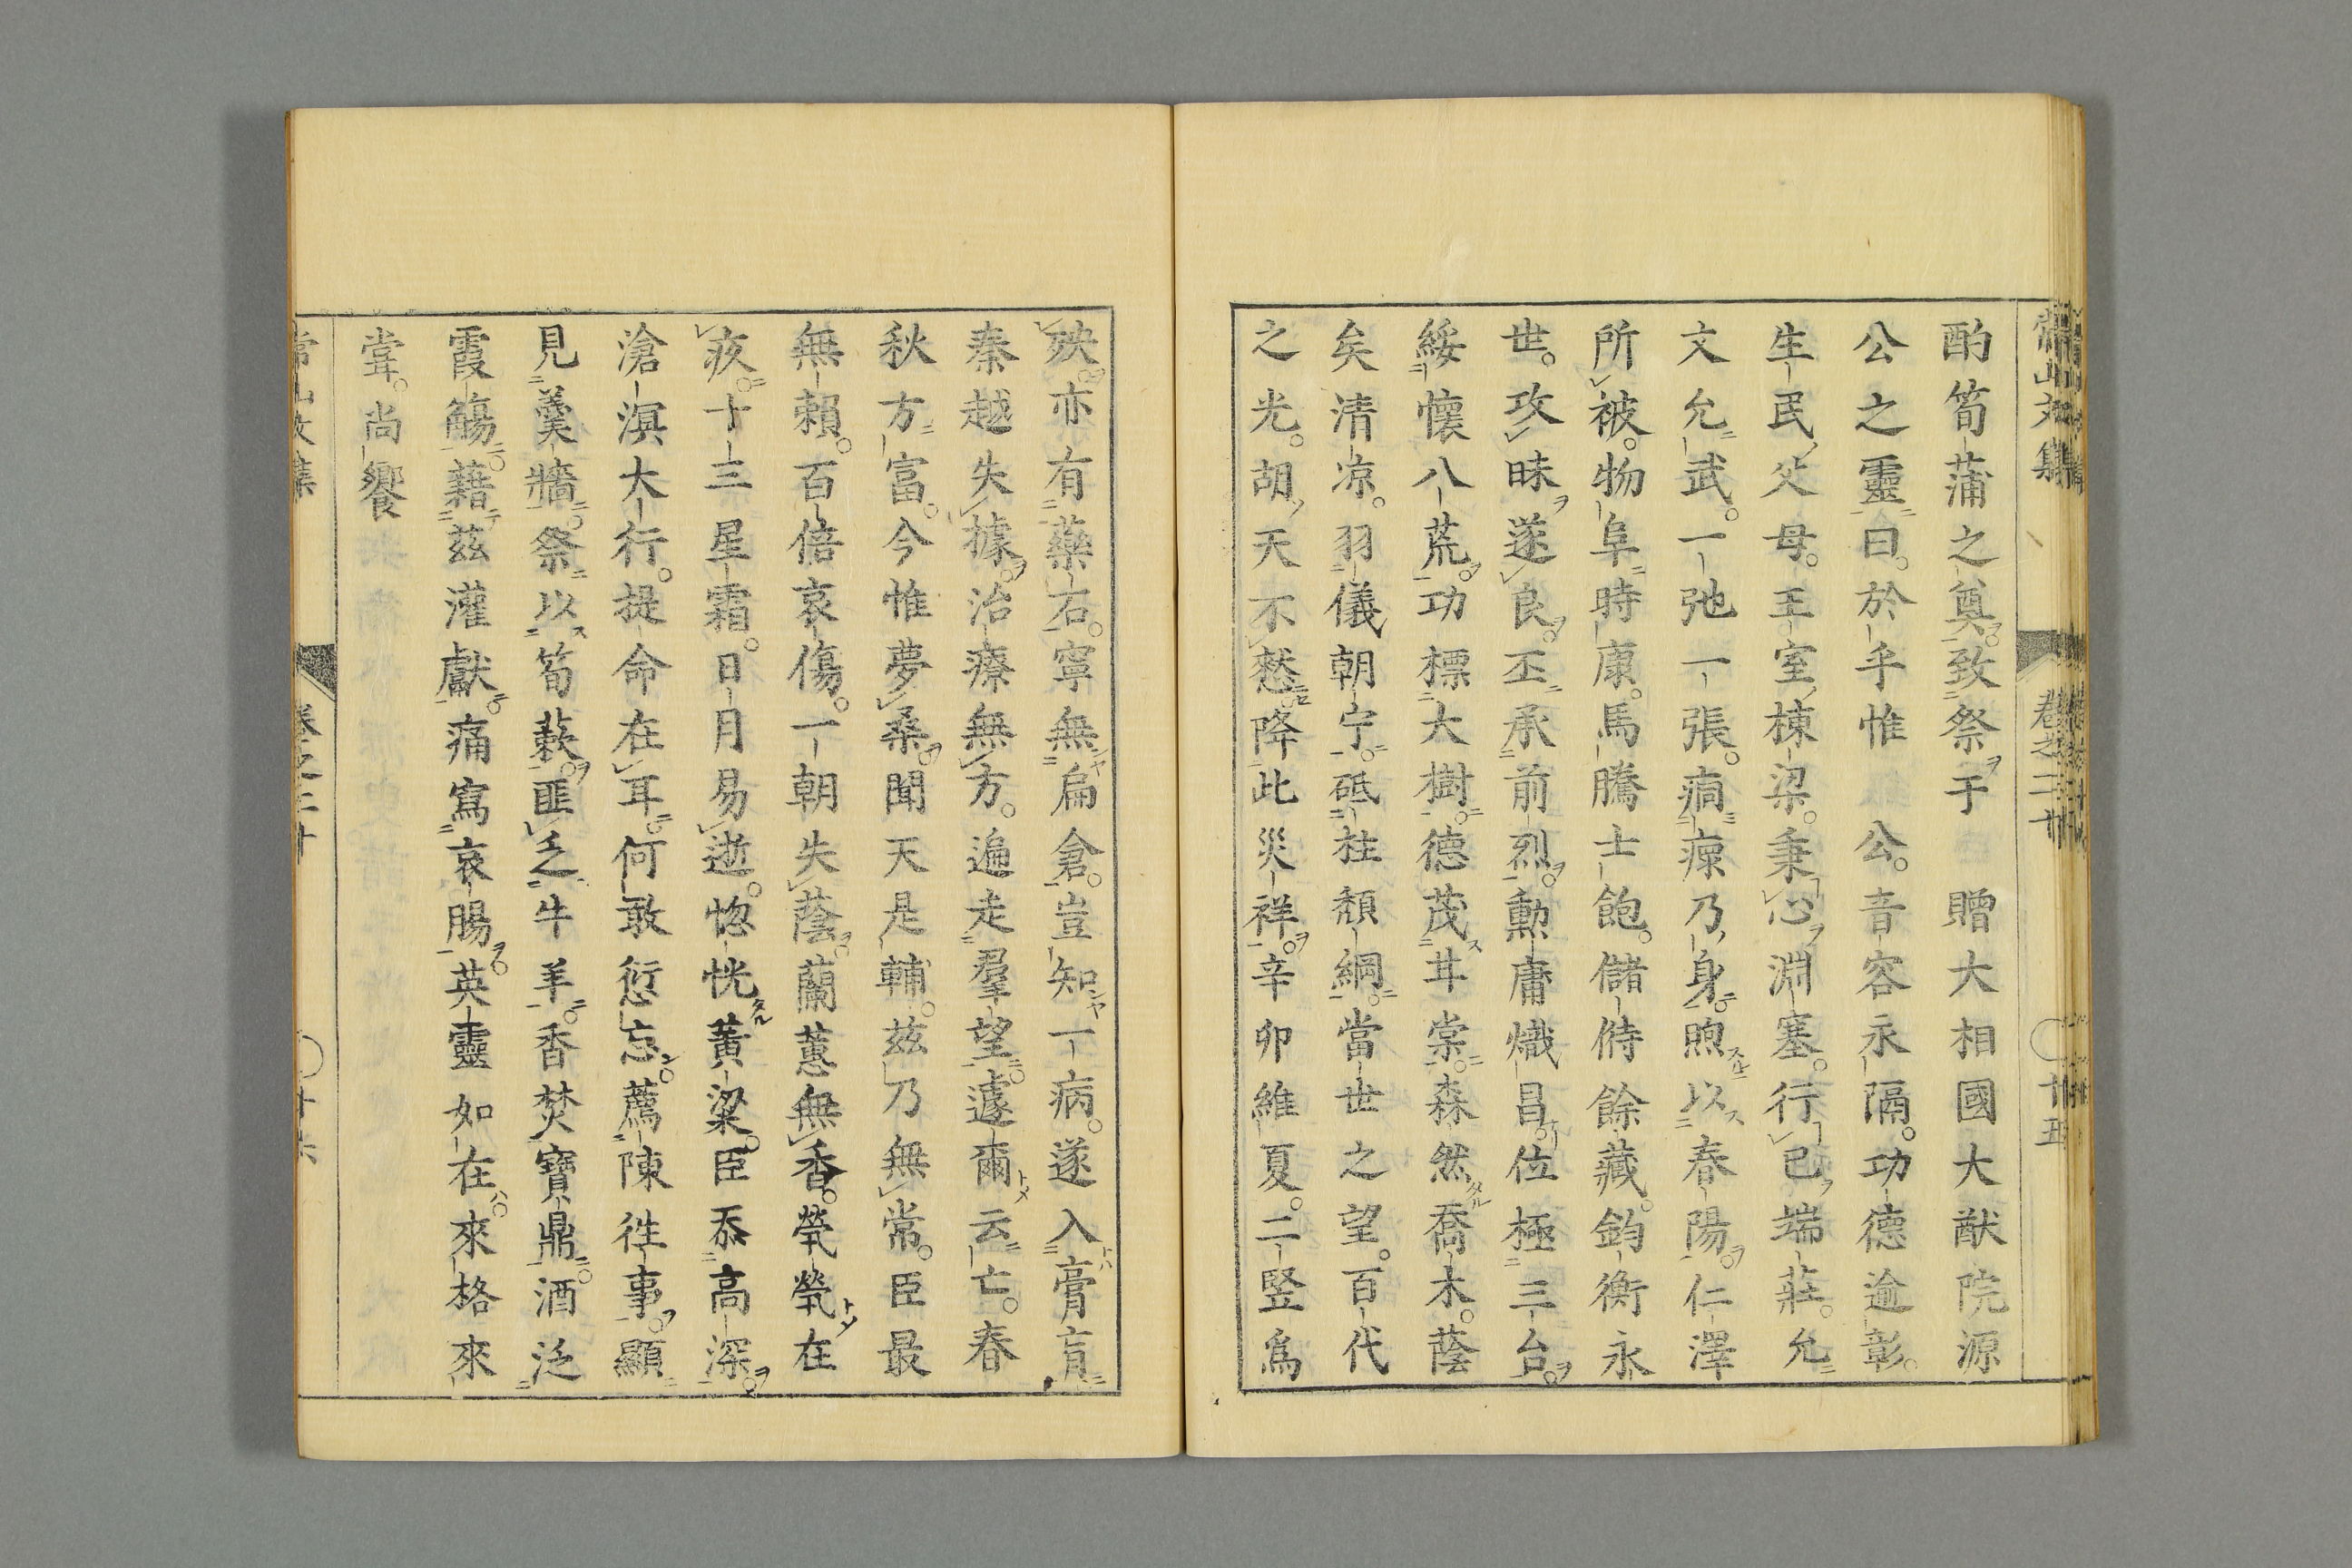 常山文集 卷之二十 廿五
酌筍蒲之奠致祭于 贈大相國大猷院源
公之靈曰於乎惟 公音容永隔功德逾彰
生民父母王室棟梁秉心淵塞行己端莊允
文允武一弛一張痌瘝乃身煦以春陽仁澤
所被物阜時康馬騰士飽儲偫餘藏鈞衡永
世攻昧遂良丕承前烈勳庸熾昌位極三台
綏懷八荒功標大樹德茂甘棠森然喬木蔭
矣清凉羽儀朝宁砥柱頽綱當世之望百代
之光胡天不憖降此災祥辛卯維夏二竪爲
殃亦有藥石寧無扁倉豈知一病遂入膏肓
秦越失據治療無方遍走羣望遽爾云亡春
秋方富今惟夢桑聞天是輔兹乃無常臣最
無賴百倍哀傷一朝失蔭蘭蕙無香煢煢在
疚十三星霜日月易逝惚恍黃粱臣忝高深
滄溟大行提命在耳何敢愆忘薦陳徃事顯
見羹牆祭以筍蔌匪乏牛羊香焚寶鼎酒泛
霞觴藉茲灌獻痛寫哀腸英靈如在來格來
甞尚饗
常山文集 卷之二十